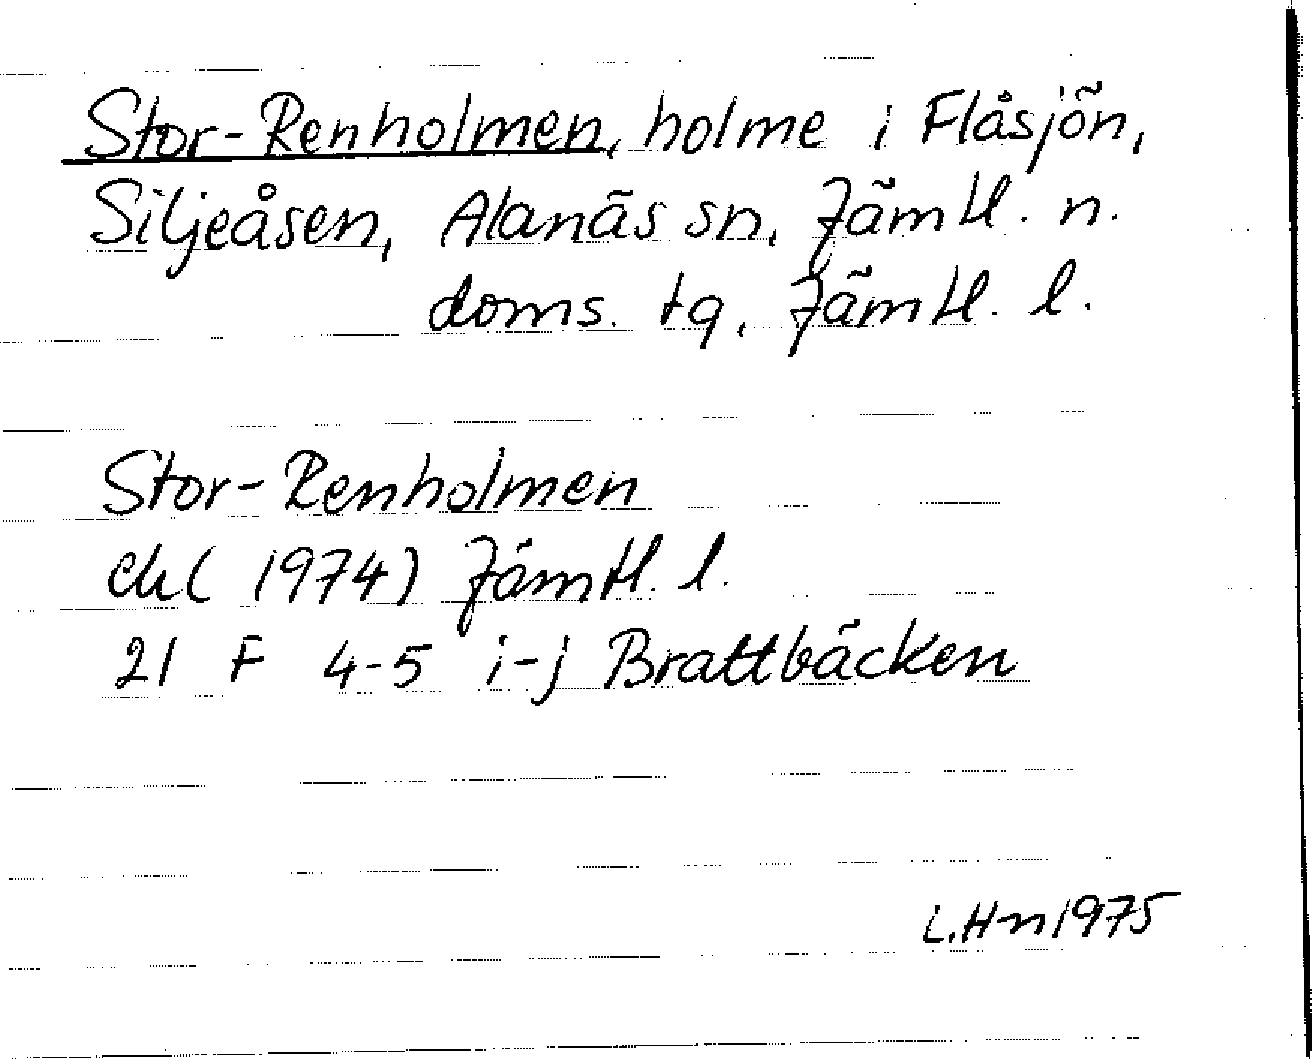 Stor-Renholmen, holme i Flåsjön,
Siljeåsen, Alanäs sn, Jämtl. n.
doms. tg, Jämtl. l.
Stor-Renholmen
ek (1974) Jämtl. l.
21 F 4-5 i-j Brattbäcken
L.Hn 1975